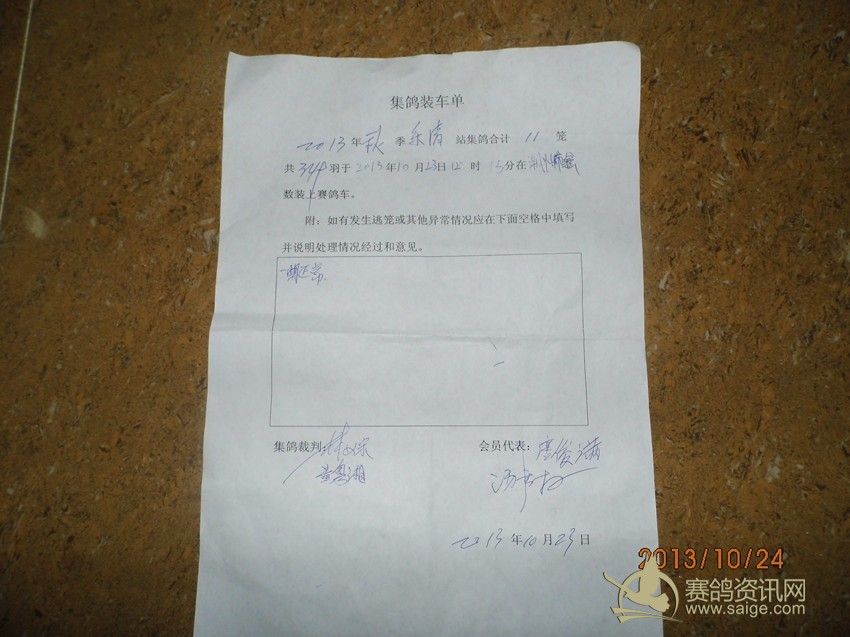 集鸽装车单
2013年秋季乐清站集鸽合计 11 笼
共324羽于2013年10月23日12时15分在
数装上赛鸽车。
附：如有发生逃笼或其他异常情况应在下面空格中填写
并说明处理情况经过和意见。
正常
集鸽裁判： 会员代表：唐俊满
2013年10月23日
2013/10/24
赛鸽资讯网
www.saige.com